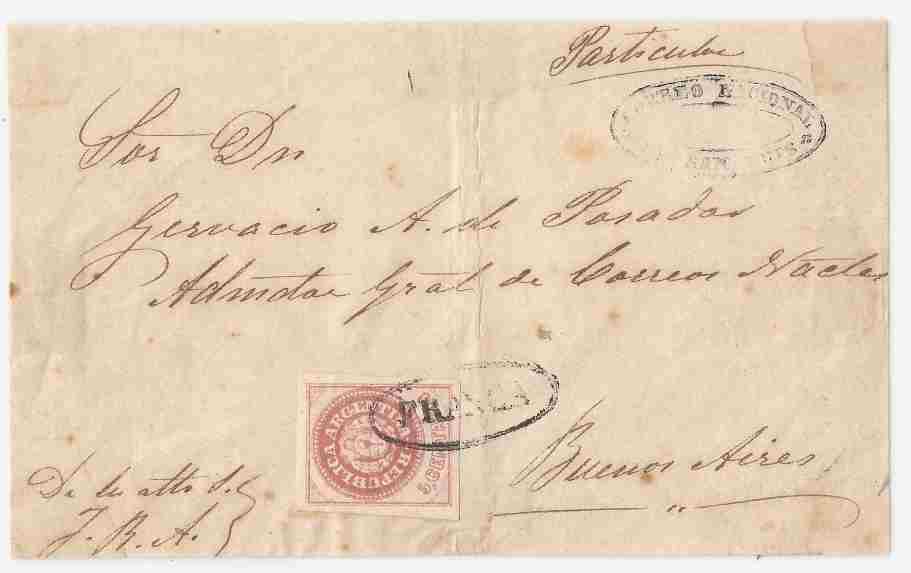 Particular
CORREO NACIONAL
SAN LUIS
Sor Dn
Gervacio A. de Posadas
Admtor Gral de Correos Nacles
FRANCA
REPUBLICA ARGENTINA
5 CENTAVOS
Buenos Aires
De su atto S.
J. R. A.